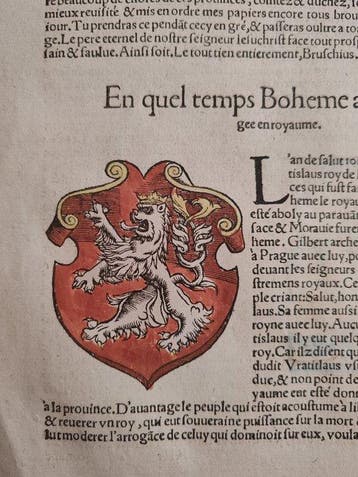 mieux reuisité & mis en ordre mes papiers encore tous brou
iour. Tu prendras ce pendāt cecy en gré, & passeras oultre a to
ge. Le pere eternel de nostre seigneur Iesuchrist face tout prosp
sain & saulue. Ainsi soit, Le tout tien entierement, Bruschius.
En quel temps Boheme a
gee en royaume.
L'an de salut 10
tislaus roy de
ces qui fust fa
heme le royau
esté aboly au parauā
face & Morauie furen
heme. Gilbert arche
a Prague auec luy, po
deuant les seigneurs
stremens royaux. Ce
ple criant: Salut, hon
laus. Sa femme aussi
royne auec luy. Auc
tislaus il y eut quelq
roy. Car ilz disent qu
dudit Vratitlaus vs
duc, & non point de
yaume ont esté
a la prouince. D'auantage le peuple qui estoit acoustumé a li
& reuerer vn roy, qui eut souueraine puissance sur la mort
lut moderer l'arrogāce de celuy qui dominoit sur eux, voula